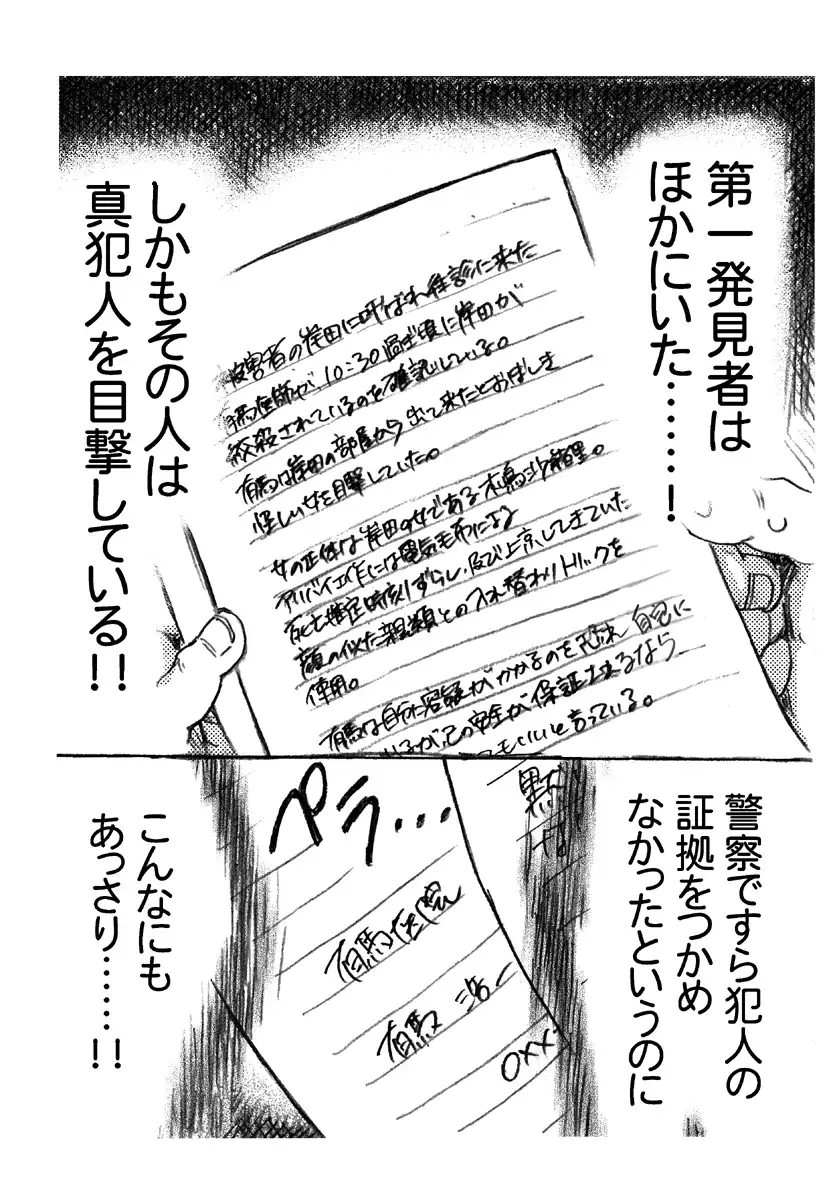 第一発見者は
ほかにいた……！
しかもその人は
真犯人を目撃している！！
被害者の岸田に呼ばれ往診に来た
有馬医師が、10:30過ぎ頃に岸田が
絞殺されているのを確認している。
有馬は岸田の部屋から出て来たとおぼしき
怪しい女を目撃していた。
女の正体は岸田の女である木島沙織里。
アリバイ工作には電気毛布による
死亡推定時刻ずらし、及び上京してきていた
顔の似た親類との入れ替わりトリックを
使用。
有馬は自分に容疑がかかるのを恐れ 自己に
いるが己の安全が保証されるなら
てもいいと言っている。
警察ですら犯人の
証拠をつかめ
なかったというのに
黙
な
ペラ…
有馬医院
有馬 浩一
○××
こんなにも
あっさり……！！